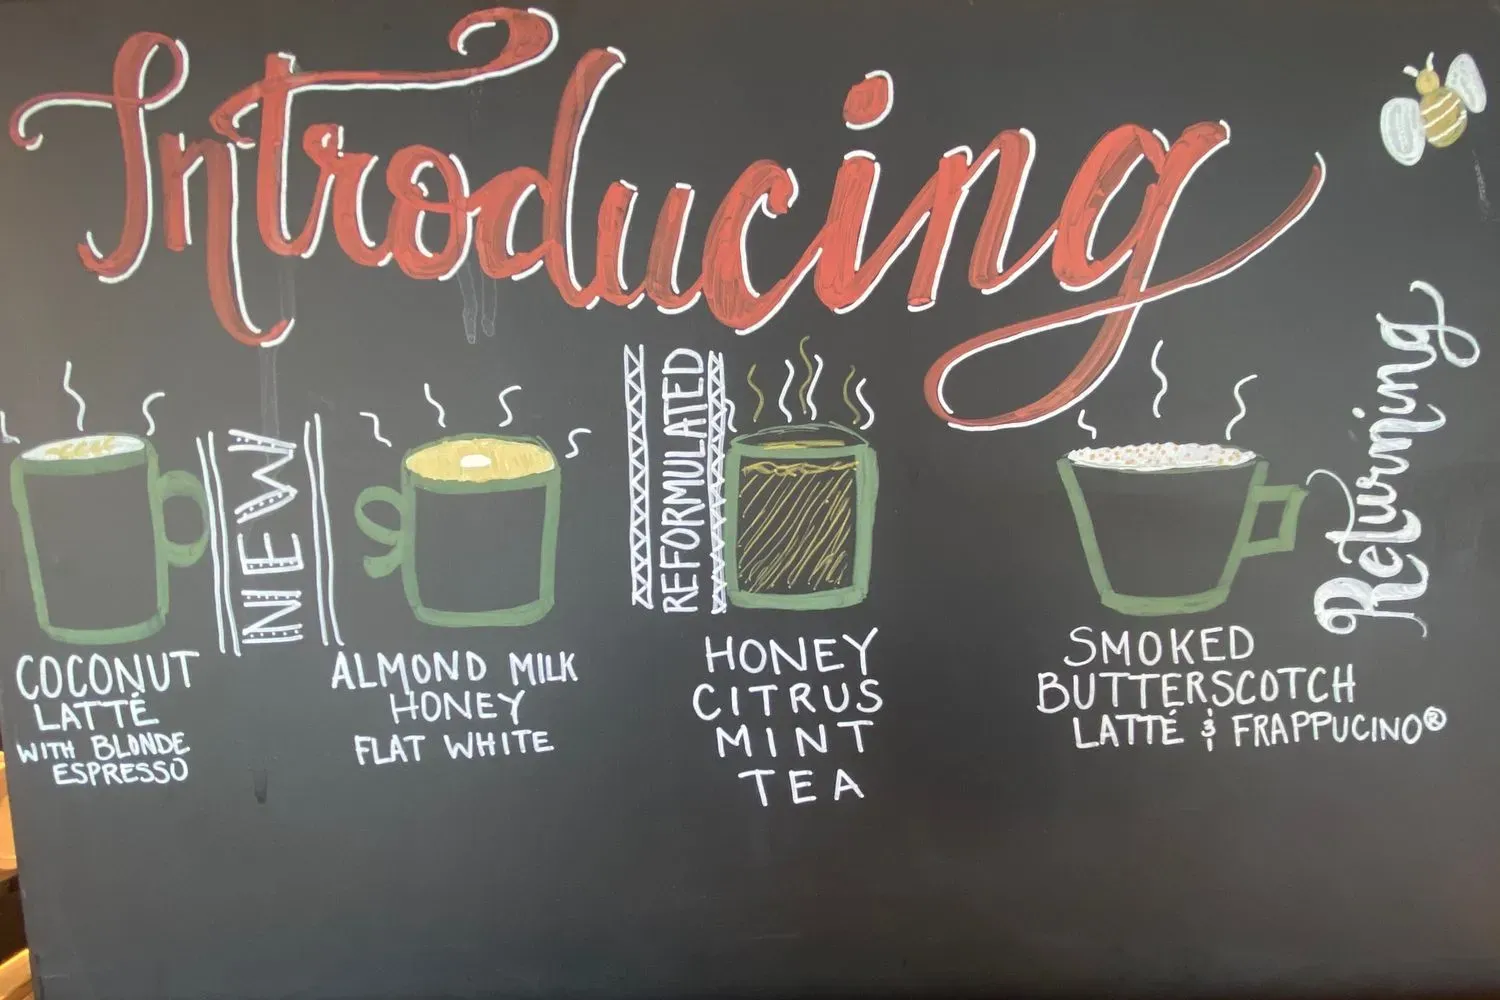 Introducing
COCONUT
LATTÉ
WITH BLONDE
ESPRESSO
NEW
ALMOND MILK
HONEY
FLAT WHITE
REFORMULATED
HONEY
CITRUS
MINT
TEA
SMOKED
BUTTERSCOTCH
LATTÉ & FRAPPUCINO®
Returning